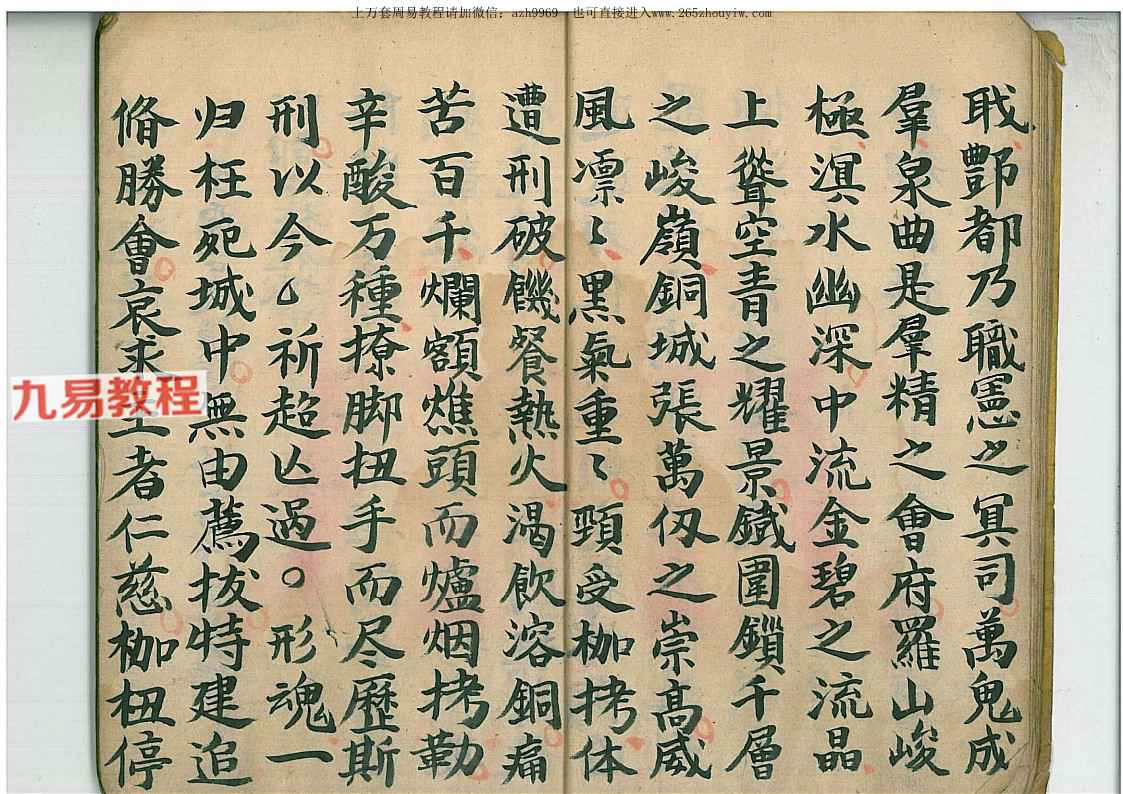 上万套周易教程请加微信：azh9969 也可直接进入www.265zhouyiw.com
戢酆都乃職憲之冥司萬鬼成
羣泉曲是羣精之會府羅山峻
極溟水幽深中流金碧之流晶
上聳空青之耀景鐵圍鎖千層
之峻嶺銅城張萬仭之崇髙威
風凛〻黑氣重〻頸受枷拷体
遭刑破饑餐熱火渴飲溶銅痛
苦百千爛額燋頭而爐烟拷勒
辛酸万種撩脚扭手而尽歷斯
刑以今 祈超亾過○形魂一
归枉死城中無由薦拔特建追
脩勝會哀求 者仁慈枷杻停
九易教程